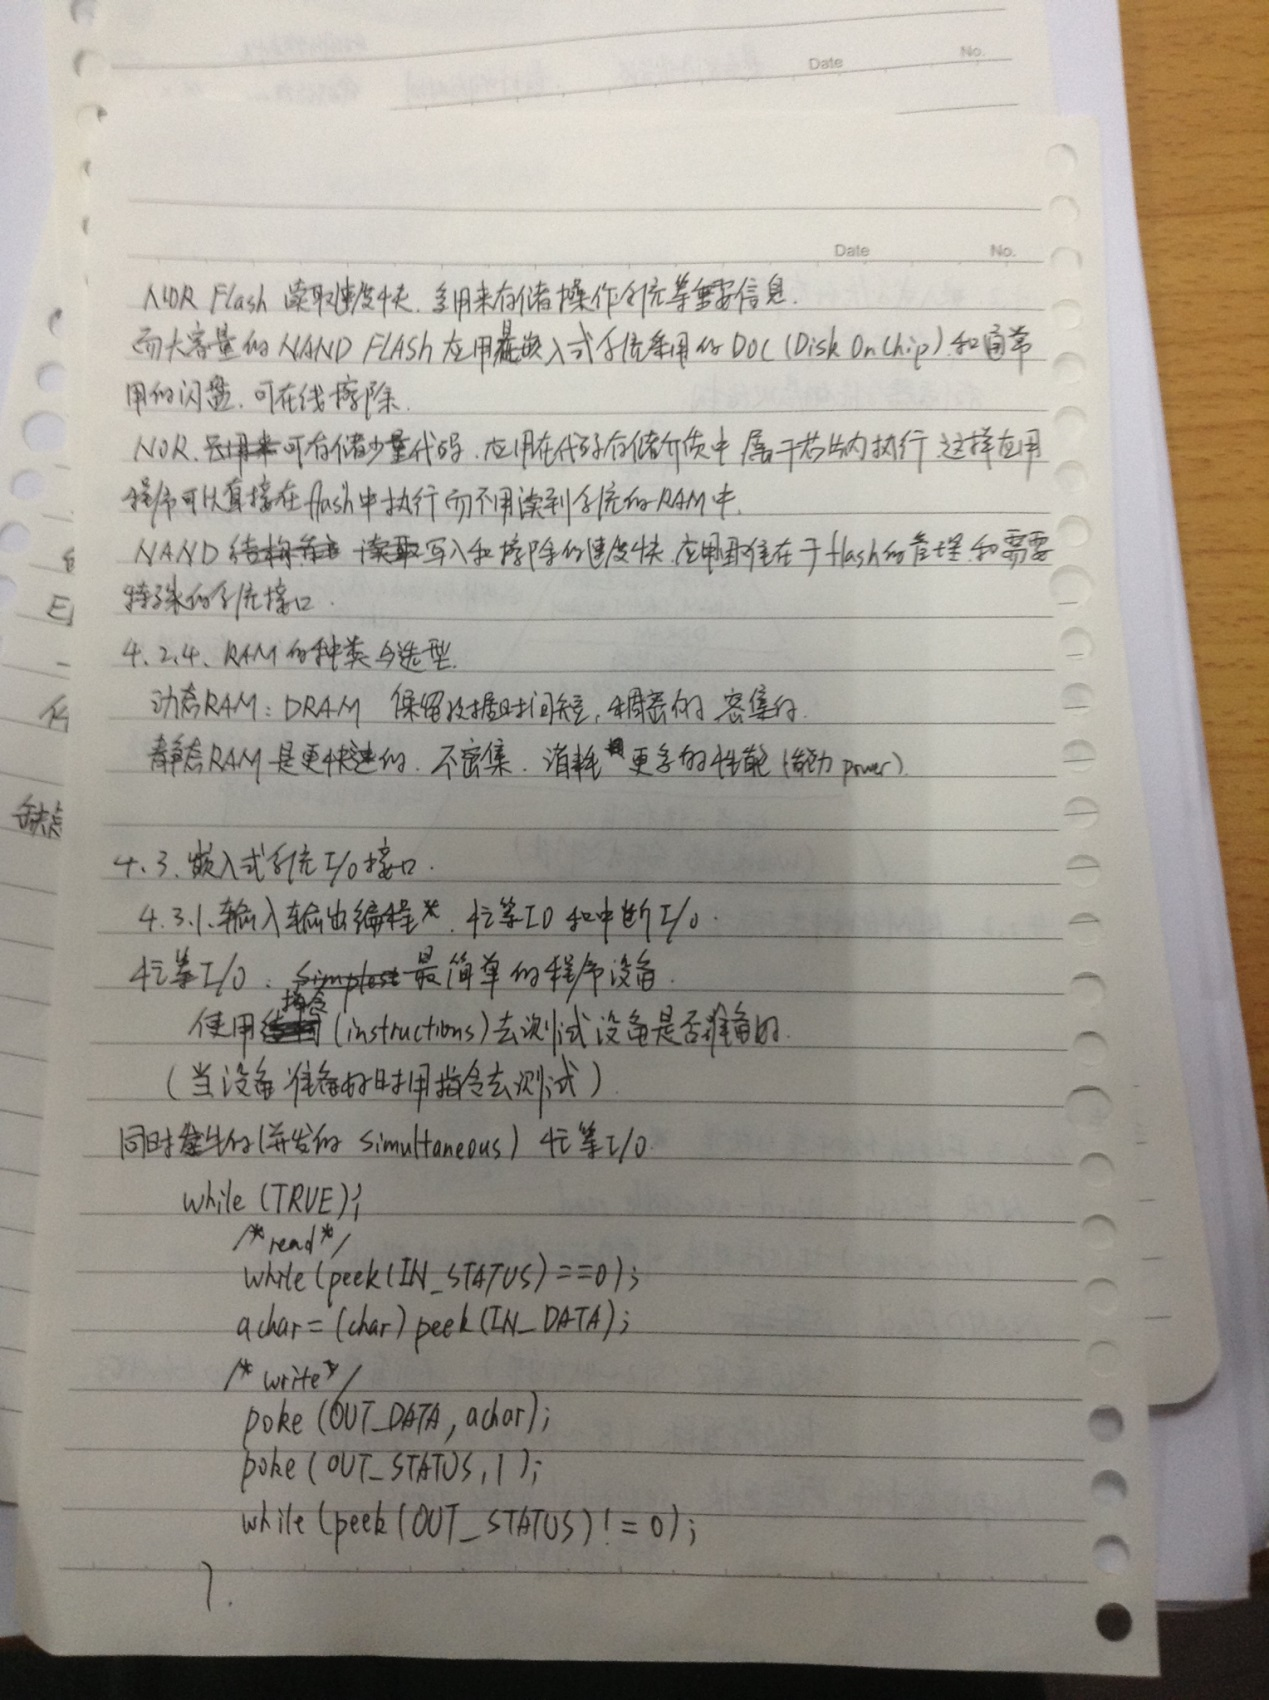 Date No.
Date No.
NOR Flash 读取速度快. 多用来存储操作系统等重要信息.
而大容量的 NAND FLASH 应用是嵌入式系统采用的 DOC (Disk On Chip) 和通常
用的闪盘. 可在线擦除.
NOR. 可存储少量代码. 应用在代码存储介质中 属于芯片内执行 这样应用
程序可以直接在 flash 中执行而不用读到系统的 RAM 中.
NAND 写入和擦除的速度快. 应用困难在于 flash 的管理和需要
特殊的系统接口.
4.2.4. RAM 的种类与选型.
动态RAM: DRAM 保留数据时间短, 稠密的 密集的.
静态RAM 是更快速的. 不密集. 消耗更多的性能 (能力 power).
缺点
4.3. 嵌入式系统 I/O 接口.
4.3.1. 输入输出编程*. 忙等IO 和中断 I/O.
忙等 I/O: 最简单的程序设备.
使用指令 (instructions) 去测试设备是否准备好.
(当设备准备好时用指令去测试)
同时发生的 (并发的 simultaneous) 忙等 I/O.
while (TRUE){
/*read*/
while (peek(IN_STATUS)==0);
achar = (char) peek(IN_DATA);
/*write*/
poke (OUT_DATA, achar);
poke (OUT_STATUS, 1);
while (peek(OUT_STATUS) != 0);
}.